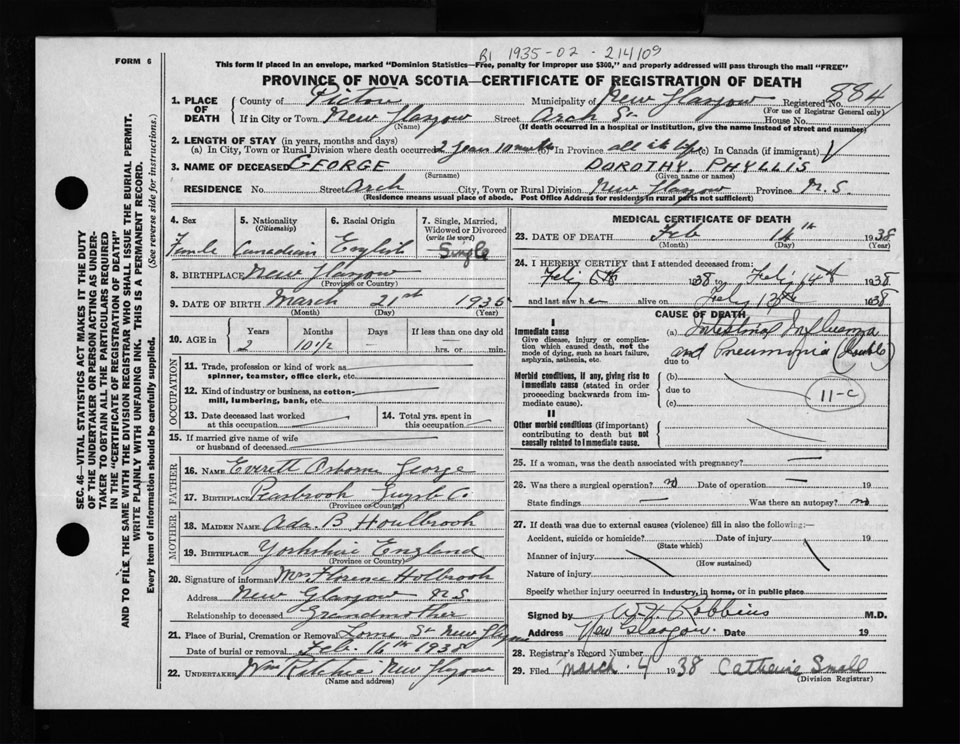 FORM 6
B1 1935-02-214109
This form if placed in an envelope, marked "Dominion Statistics—Free, penalty for improper use $300," and properly addressed will pass through the mail "FREE"
PROVINCE OF NOVA SCOTIA—CERTIFICATE OF REGISTRATION OF DEATH
884
1. PLACE OF DEATH County of Pictou Municipality of New Glasgow Registered No.
(For use of Registrar General only)
If in City or Town New Glasgow Street Arch St House No.
(Name) (If death occurred in a hospital or institution, give the name instead of street and number)
2. LENGTH OF STAY (in years, months and days)
(a) In City, Town or Rural Division where death occurred 2 years 10 months (b) In Province all its life (c) In Canada (if immigrant)
3. NAME OF DECEASED GEORGE DOROTHY. PHYLLIS
(Surname) (Given name or names)
RESIDENCE No. Street Arch City, Town or Rural Division New Glasgow Province N.S.
(Residence means usual place of abode. Post Office Address for residents in rural parts not sufficient)
4. Sex 5. Nationality 6. Racial Origin 7. Single, Married, Widowed or Divorced
(Citizenship) (write the word)
Female Canadian English Single
8. BIRTHPLACE New Glasgow
(Province or Country)
9. DATE OF BIRTH March 21st 1935
(Month) (Day) (Years)
10. AGE in Years Months Days If less than one day old
2 10 1/2 — hrs. or — min.
OCCUPATION
11. Trade, profession or kind of work as spinner, teamster, office clerk, etc.
12. Kind of industry or business, as cotton-mill, lumbering, bank, etc.
13. Date deceased last worked at this occupation
14. Total yrs. spent in this occupation
15. If married give name of wife or husband of deceased
FATHER
16. NAME Everett Osborne George
17. BIRTHPLACE Peasbrook Guysb Co.
(Province or Country)
MOTHER
18. MAIDEN NAME Ada B. Houlbrook
19. BIRTHPLACE Yorkshire England
(Province or Country)
20. Signature of informant Mrs Florence Holbrook
Address New Glasgow N.S
Relationship to deceased Grandmother
21. Place of Burial, Cremation or Removal Lorne St New Glasgow
Date of burial or removal Feb. 16th 1938
22. UNDERTAKER Wm Ritchie New Glasgow
(Name and address)
MEDICAL CERTIFICATE OF DEATH
23. DATE OF DEATH Feb 14th 1938
(Month) (Day) (Year)
24. I HEREBY CERTIFY that I attended deceased from:
Feby 6th 1938 to Feby 14th 1938
and last saw her alive on Feby 13th 1938
CAUSE OF DEATH
I
Immediate cause
Give disease, injury or complication which caused death, not the mode of dying, such as heart failure, asphyxia, asthenia, etc.
(a) Intestinal Influenza
and Pneumonia (Double)
due to
Morbid conditions, if any, giving rise to immediate cause (stated in order proceeding backwards from immediate cause).
(b)
due to
(c)
11-c
II
Other morbid conditions (if important) contributing to death but not causally related to immediate cause.
25. If a woman, was the death associated with pregnancy?
26. Was there a surgical operation? no Date of operation — 19
State findings Was there an autopsy? no
27. If death was due to external causes (violence) fill in also the following:—
Accident, suicide or homicide? Date of injury 19
(State which)
Manner of injury
(How sustained)
Nature of injury
Specify whether injury occurred in industry, in home, or in public place
Signed by W.H. Robbins M.D.
Address New Glasgow. Date 19
28. Registrar's Record Number
29. Filed March. 4 1938 Catherine Small
(Division Registrar)
SEC. 46—VITAL STATISTICS ACT MAKES IT THE DUTY
OF THE UNDERTAKER OR PERSON ACTING AS UNDER-
TAKER TO OBTAIN ALL THE PARTICULARS REQUIRED
IN THE "CERTIFICATE OF REGISTRATION OF DEATH"
AND TO FILE THE SAME WITH THE DIVISION REGISTRAR WHO SHALL ISSUE THE BURIAL PERMIT.
WRITE PLAINLY WITH UNFADING INK. THIS IS A PERMANENT RECORD.
Every item of information should be carefully supplied. (See reverse side for instructions.)